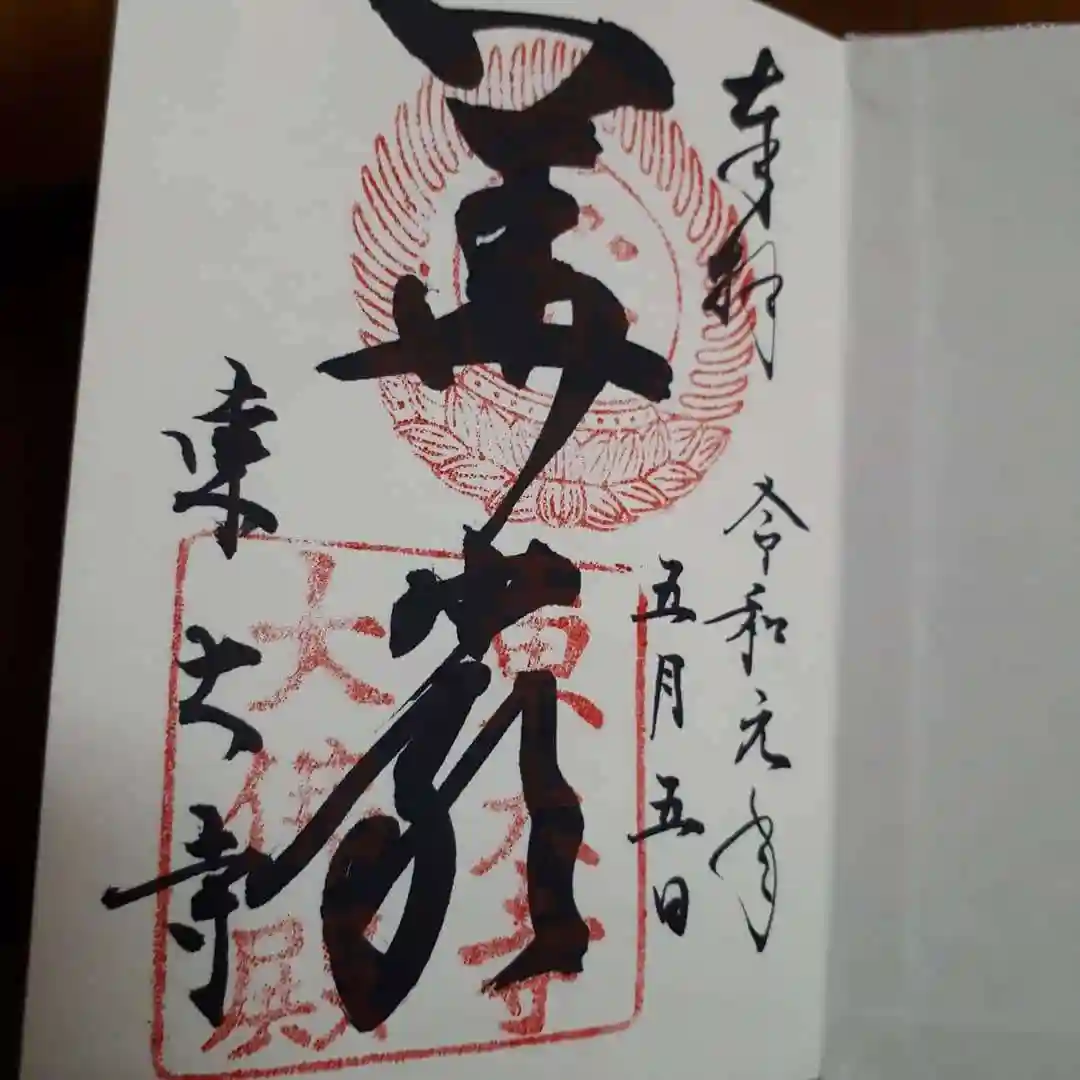 奉拝
令和元年
五月五日
華厳
東大寺
東大寺
大仏殿